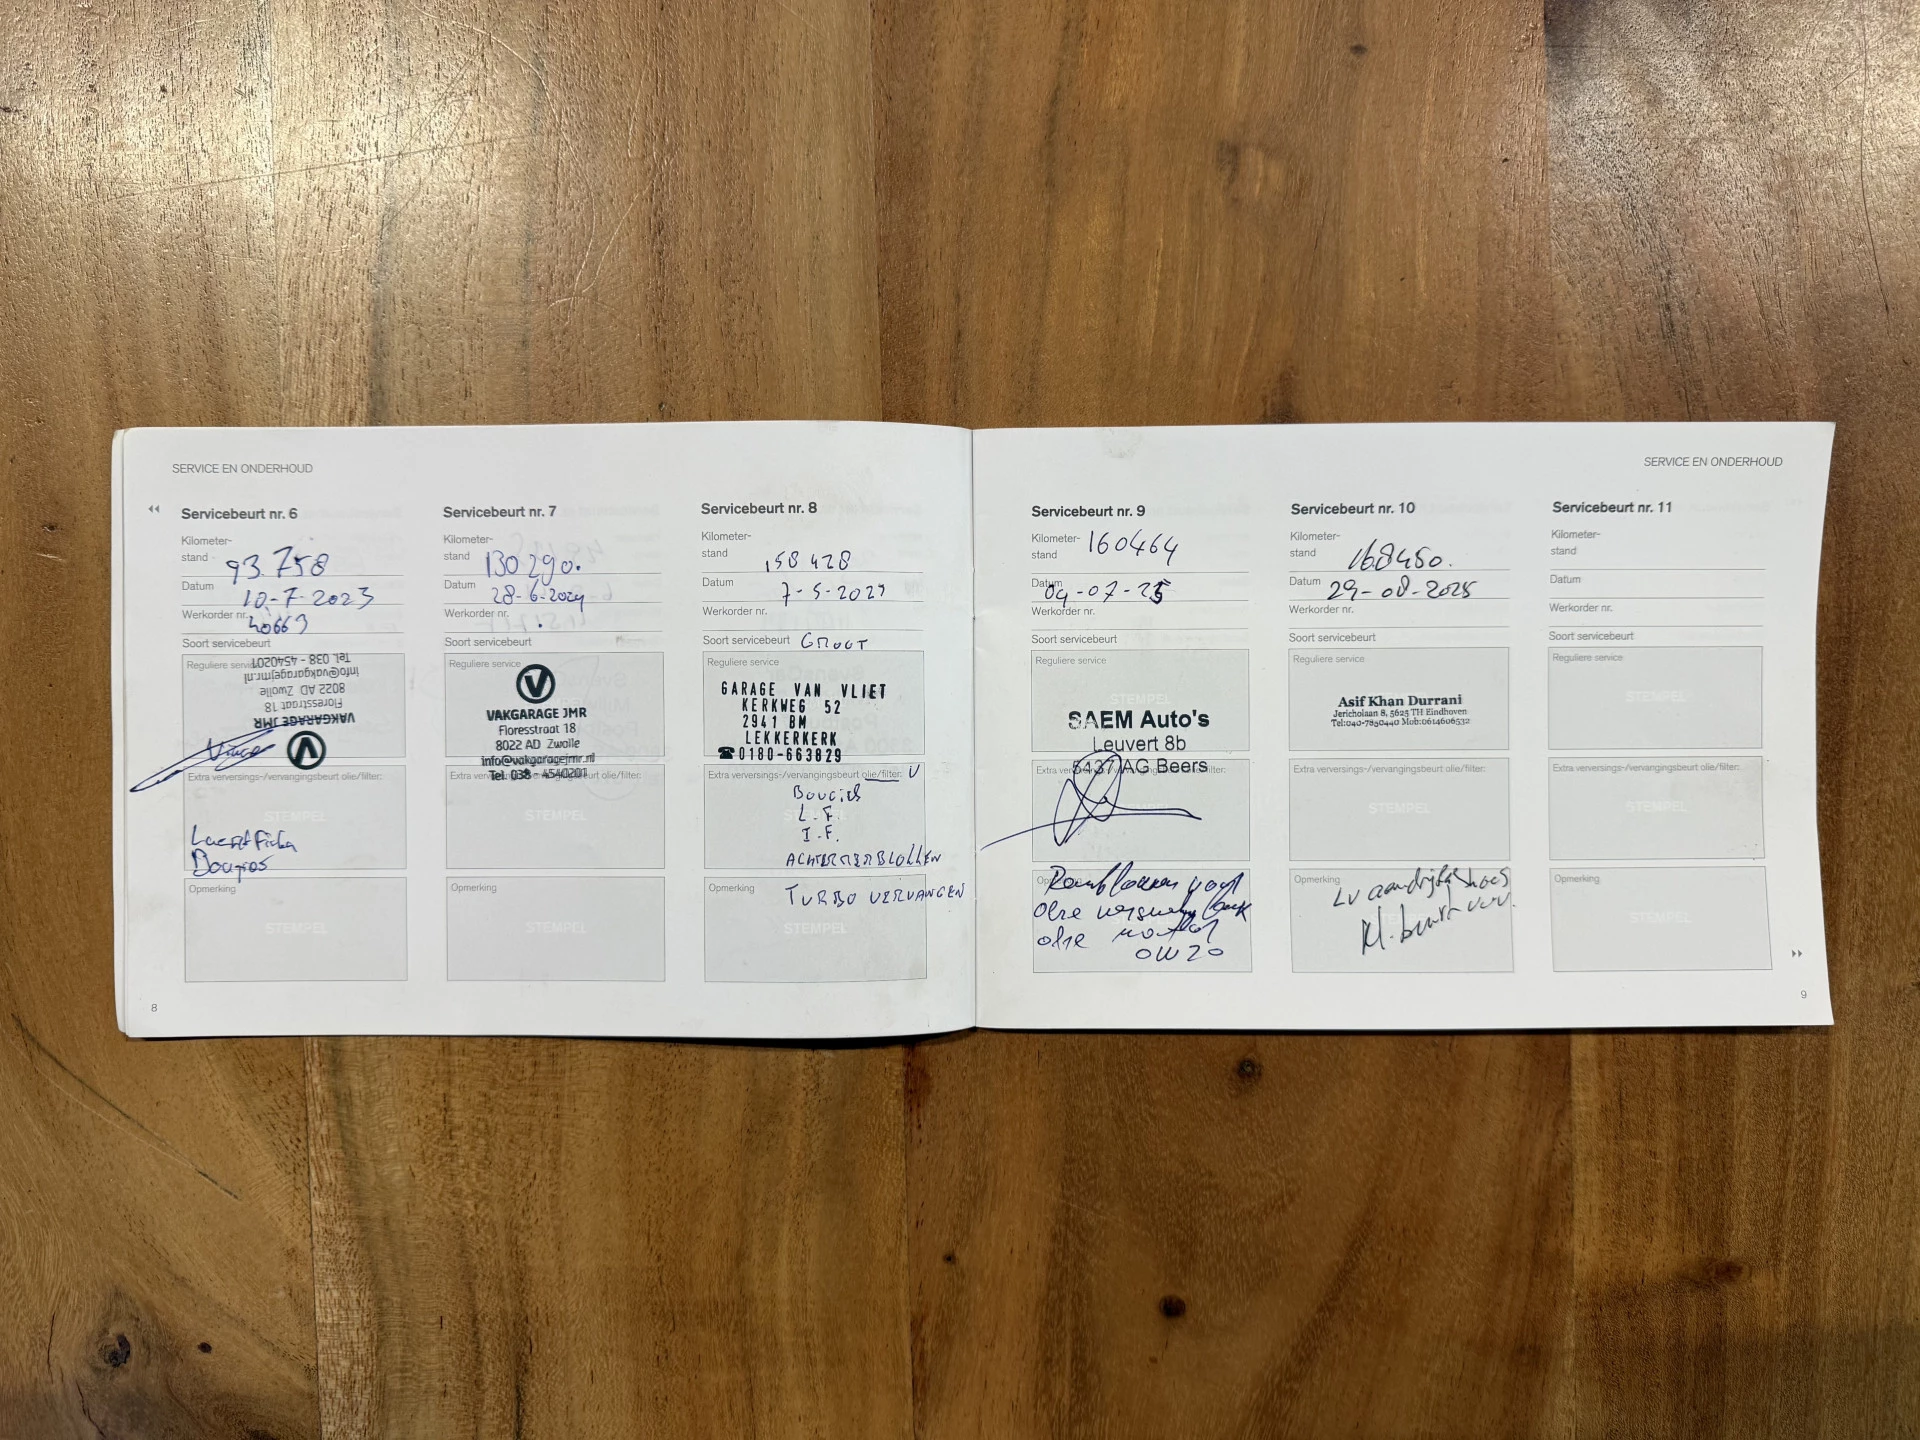 SERVICE EN ONDERHOUD
Servicebeurt nr. 6
Kilometer-
stand 93.758
Datum 10-7-2023
Werkorder nr. 40663
Soort servicebeurt
Reguliere service
VAKGARAGE JMR
Floresstraat 18
8022 AD Zwolle
info@vakgaragejmr.nl
Tel. 038 - 4540201
Extra verversings-/vervangingsbeurt olie/filter:
STEMPEL
Opmerking
STEMPEL
Servicebeurt nr. 7
Kilometer-
stand 130290.
Datum 28-6-2024
Werkorder nr.
Soort servicebeurt
Reguliere service
VAKGARAGE JMR
Floresstraat 18
8022 AD Zwolle
info@vakgaragejmr.nl
Tel. 038 - 4540201
Extra verversings-/vervangingsbeurt olie/filter:
STEMPEL
Opmerking
STEMPEL
Servicebeurt nr. 8
Kilometer-
stand 158428
Datum 7-5-2025
Werkorder nr.
Soort servicebeurt GROOT
Reguliere service
GARAGE VAN VLIET
KERKWEG 52
2941 BM
LEKKERKERK
☎0180-663829
Extra verversings-/vervangingsbeurt olie/filter: V
BOUGIES
L.F.
I.F.
STEMPEL
ACHTERREMBLOKKEN
Opmerking TURBO VERVANGEN
STEMPEL
8
SERVICE EN ONDERHOUD
Servicebeurt nr. 9
Kilometer-
stand 160464
Datum 04-07-25
Werkorder nr.
Soort servicebeurt
Reguliere service
STEMPEL
SAEM Auto's
Leuvert 8b
5437 AG Beers
Extra verversings-/vervangingsbeurt olie/filter:
Opmerking
Remblokken voor
olie
olie
0W20
Servicebeurt nr. 10
Kilometer-
stand 168450.
Datum 29-08-2025
Werkorder nr.
Soort servicebeurt
Reguliere service
Asif Khan Durrani
Jericholaan 8, 5625 TH Eindhoven
Tel:040-7850440 Mob:0614606532
Extra verversings-/vervangingsbeurt olie/filter:
STEMPEL
Opmerking
LV aandrijfashoes
Kl. beurt
Servicebeurt nr. 11
Kilometer-
stand
Datum
Werkorder nr.
Soort servicebeurt
Reguliere service
STEMPEL
Extra verversings-/vervangingsbeurt olie/filter:
STEMPEL
Opmerking
STEMPEL
9